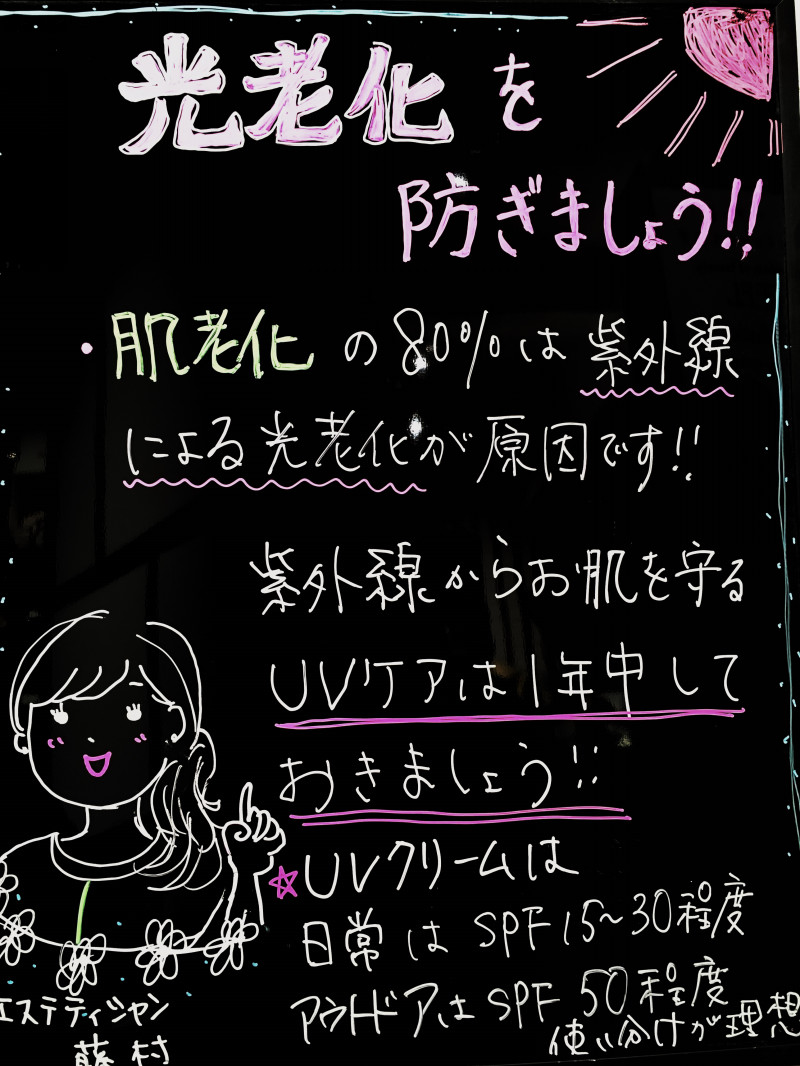 光老化を
防ぎましょう!!
・肌老化の80%は紫外線
による光老化が原因です!!
紫外線からお肌を守る
UVケアは1年中して
おきましょう!!
☆UVクリームは
日常はSPF15~30程度
アウトドアはSPF50程度
使い分けが理想
エステティシャン
藤村